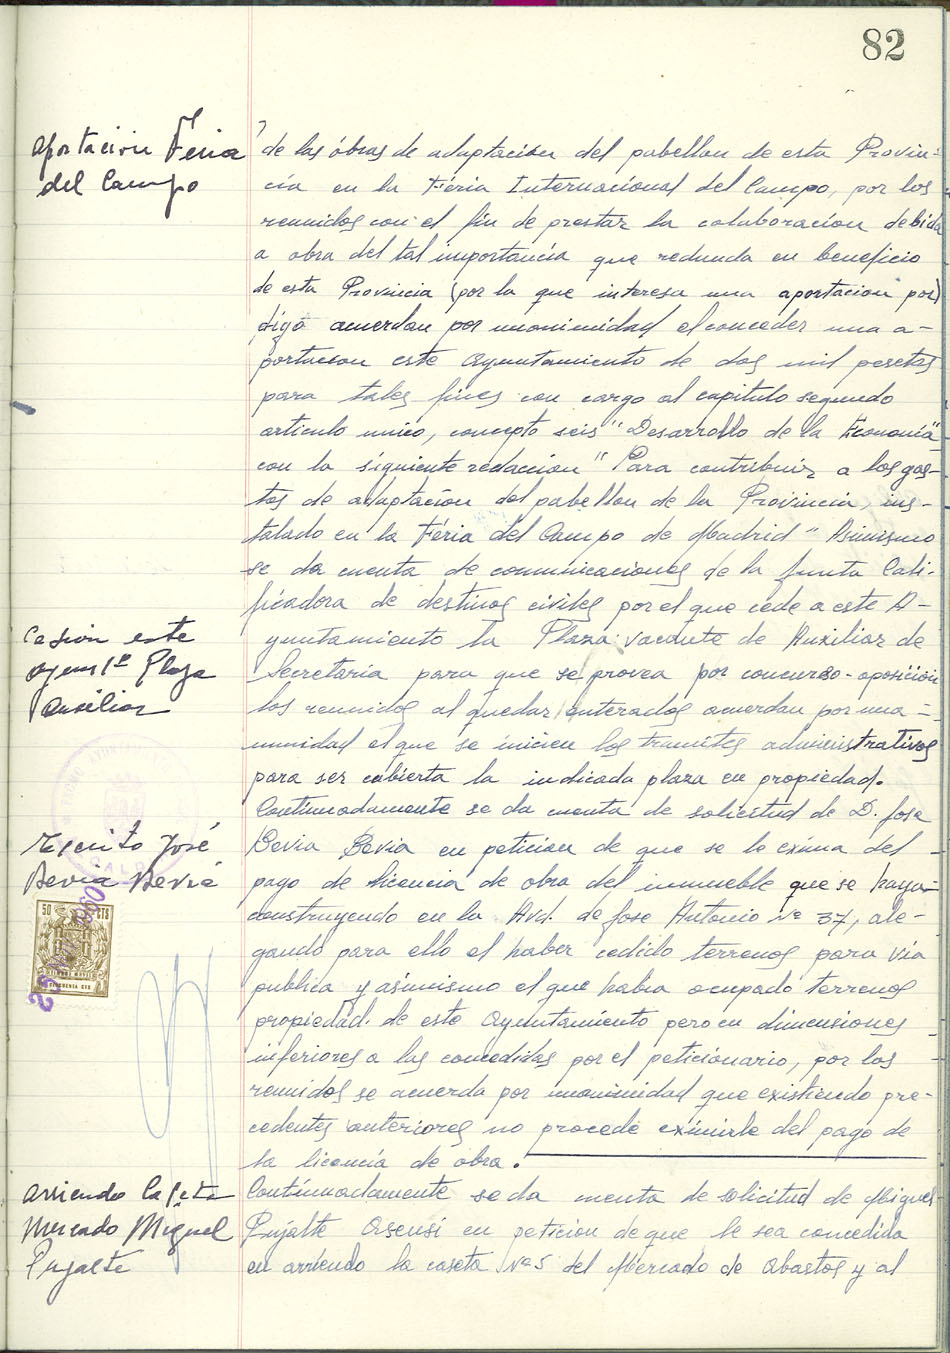 82
Aportacion Feria
del Campo
de las óbras de adaptacion del pabellon de esta Provin-
cia en la Féria Internacional del Campo, por los
reunidos con el fin de prestar la colaboracion debida
a obra del tal importancia que redunda en beneficio
de esta Provincia (por la que interesa una aportacion por)
digo acuerdan por unanimidad el conceder una a-
portacion este Ayuntamiento de dos mil pesetas
para tales fines con cargo al capitulo segundo
articulo unico, concepto seis "Desarrollo de la Economia"
con la siguiente redaccion "Para contribuir a los gas-
tos de adaptacion del pabellon de la Provincia, ins-
talado en la Féria del Campo de Madrid" Asimismo
se da cuenta de comunicaciones de la Junta Cali-
ficadora de destinos civiles por el que cede a este A-
yuntamiento la Plaza vacante de Auxiliar de
Secretaria para que se provea por concurso-oposicion
los reunidos al quedar enterados acuerdan por una-
nimidad el que se inicien los tramites administrativos
para ser cubierta la indicada plaza en propiedad.
Cesión este
Ayunto Plaza
Auxiliar
Continuadamente se da cuenta de solicitud de D. Jose
Bevia Bevia en peticion de que se le exima del
pago de licencia de obra del inmueble que se haya
construyendo en la Avd. de Jose Antonio nº 37, ale-
gando para ello el haber cedido terrenos para via
publica y asimismo el que habia ocupado terrenos
propiedad de este Ayuntamiento pero en dimensiones
inferiores a las concedidas por el peticionario, por los
reunidos se acuerda por unanimidad que existiendo pre-
cedentes anteriores no procede eximirle del pago de
la licencia de obra.
Escrito José
Beviá Beviá
50 CTS
25
1960
CINCUENTA CTS
Arriendo Caseta
Mercado Miguel
Pujalte
Continuadamente se da cuenta de solicitud de Miguel
Pujalte Asensi en peticion de que le sea concedida
en arriendo la caseta Nº 5 del Mercado de Abastos y al